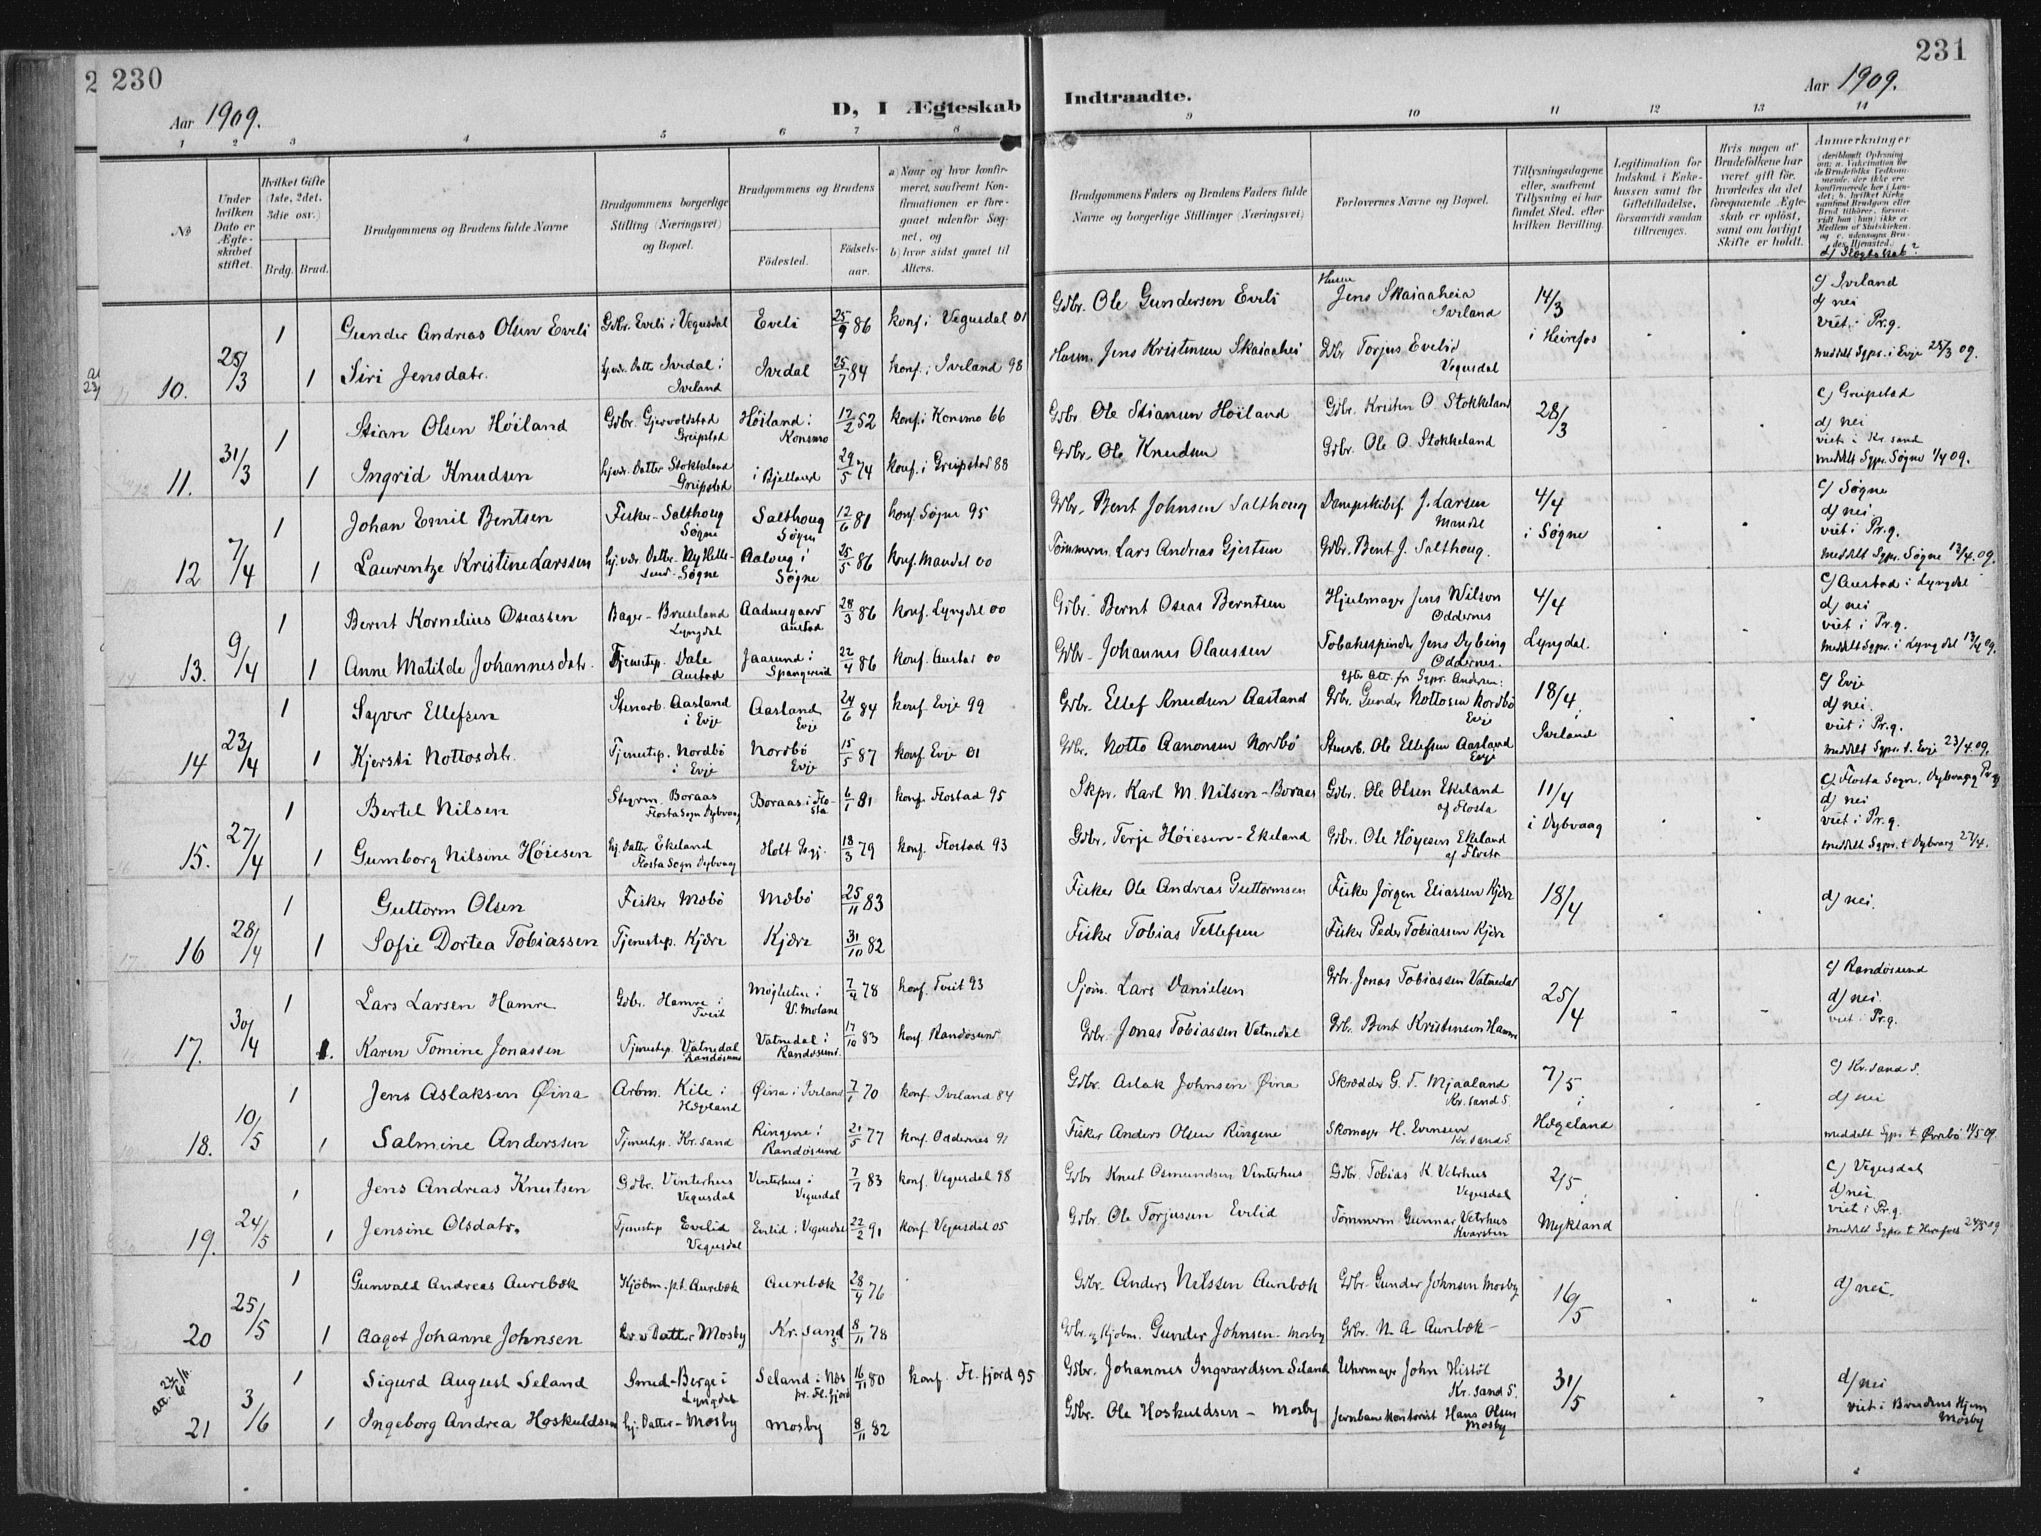 230
Aar 1909.
D, I Ægteskab
1 2 3 4 5 6 7 8
No
Under hvilken Dato er Ægteskabet stiftet.
Hvilket Gifte (1ste, 2det, 3die osv.)
Brdg. Brud.
Brudgommens og Brudens fulde Navne
Brudgommens borgerlige Stilling (Næringsvei) og Bopæl.
Brudgommens og Brudens
Födested. Födselsaar.
a) Naar og hvor konfirmeret, saafremt Konfirmationen er foregaaet udenfor Sognet, og
b) hvor sidst gaaet til Alters.
1 Gunder Andreas Olsen Eveli Gdbr. Eveli i Vegusdal Eveli 25/9 86 konf. i Vegusdal 01
10. 25/3 1 Siri Jensdatr. hjvær. Datter Ivedal i Iveland Ivedal 25/7 84 konf. i Iveland 98
1 Stian Olsen Höiland Gdbr. Gjervoldstad Greipstad Höiland i Konsmo 12/2 52 konf. i Konsmo 66
11. 31/3 1 Ingrid Knudsen hjvær. Datter Stokkeland Greipstad i Bjelland 29/5 74 konf. i Greipstad 88
1 Johan Emil Bentsen Fisker - Salthoug Søgne Salthoug Søgne 12/6 81 konf. Søgne 95
12 7/4 1 Laurentze Kristine Larssen hj. vær. Datter - Ny Hellesund - Søgne Aaloug i Søgne 25/5 86 konf. Mandal 00
1 Bernt Kornelius Oseassen Bager - Bruseland Lyngdal Aadnesgaard Austad 28/3 86 konf. Lyngdal 00
13. 9/4 1 Anne Matilde Johannesdatr. Tjenestep. Dale Austad Jaasund i Spangereid 22/4 86 konf. Austad 00
1 Syver Ellefsen Stenarb. Aasland i Evje Aasland Evje 24/6 84 konf. Evje 99
14 23/4 1 Kjersti Nottosdtr. Tjenestep. Nordbö i Evje Nordbö Evje 15/5 87 konf. Evje 01
1 Bertel Nilsen Styrm. Boraas Flosta Sogn Dybvaag Boraas i Flosta 6/1 81 konf. Flostad 95
15. 27/4 1 Gumborg Nilsine Höiesen hj. Datter Ekeland Flosta Sogn Dybvaag Holt Pgj. 18/3 79 konf. Flostad 93
1 Guttorm Olsen Fisker Mæbö Mæbö 25/11 83
16 28/4 1 Sofie Dortea Tobiassen Tjenestep. Kjære Kjære 31/10 82
1 Lars Larsen Hamre Gdbr. Hamre i Tveit Möglestu i V. Moland 7/4 78 konf. Tveit 93
17. 30/4 1. Karen Tomine Jonassen Tjenestep. Vatnedal Randøsund Vatnedal i Randøsund. 17/10 83 konf. Randøsund
1 Jens Aslaksen Øina Arbm. Kile i Hægeland Øina i Iveland 7/1 70 konf. Iveland 84
18. 10/5 1 Salmine Anderssen Tjenestep. Kr.sand Ringene i Randøsund 21/5 77 konf. Oddernes 92
1 Jens Andreas Knutsen Gdbr. Vinterhus Vegusdal Vinterhus i Vegusdal 7/7 83 konf. Vegusdal 98
19. 24/5 1 Jensine Olsdatr. Tjenestep Evelid Vegusdal Evelid i Vegusdal 22/2 91 konf. Vegusdal 05
1 Gunvald Andreas Aurebæk Kjöbm. p.t. Aurebæk Aurebæk 28/4 76
20 25/5 1 Aagot Johanne Johnsen hv. v. Datter Mosby Kr. sand S 8/11 78
1 Sigurd August Seland Smed - Berge i Lyngdal Seland i Næs pr. Fl. fjord 16/11 80 konf. Fl. fjord 95
21 3/6 1 Ingeborg Andrea Hoskuldsen hj. Datter - Mosby Mosby 8/11 82
231
Aar 1909.
Indtraadte.
9 10 11 12 13 14
Brudgommens Faders og Brudens Faders fulde Navne og borgerlige Stillinger (Næringsvei)
Forlovernes Navne og Bopæl.
Tillysningsdagene eller, saafremt Tillysning ei har fundet Sted, efter hvilken Bevilling.
Legitimation for Indskud i Enkekassen samt for Giftetilladelse, forsaavidt saadan tiltrænges.
Hvis nogen af Brudefolkene har været gift för, hvorledes da det foregaaende Ægteskab er oplöst, samt om lovligt Skifte er holdt.
Anmærkninger
d) Slægtskab?
Gdbr. Ole Gundersen Eveli Husm Jens Skaiaaheia Iveland 14/3 c) Iveland d) nei viet i Pr.g.
Husm. Jens Kristensen Skaiaahei Gdbr Torjus Evelid Vegusdal i Heirefos meddelt Sgpr. i Evje 25/3 09.
Gdbr. Ole Stiansen Höiland Gdbr. Kristen O. Stokkeland 28/3 c) Greipstad d) nei viet i Kr.sand
Gdbr. Ole Knudsen Gdbr. Ole O. Stokkeland meddelt Sgpr. Søgne 1/4 09.
Gdbr. Bent Johnsen Salthoug Dampskibsf. J. Larsen Mandal 4/4 c) Søgne d) nei. viet i Pr.g.
Tømmerm. Lars Andreas Gjertsen Gdbr. Bent J. Salthoug. i Søgne meddelt Sgpr. Søgne 13/4.09.
Gdbr. Bernt Oseas Berntsen Hjulmager Jens Wilson Oddernes 4/4 c) Austad i Lyngdal d) nei viet i Pr.g.
Gdbr - Johannes Olaussen Tobaksspinder Jens Dybing Oddernes. Lyngdal. meddelt Sgpr. i Lyngdal 13/4 09.
Gdbr. Ellef Knudsen Aasland Efter Att. fr Sgpr. Andersen: Gdbr. Gunder Nottosen Nordbö Evje 18/4 i c) Evje d) nei. viet i Pr.g.
Gdbr. Notto Aanonsen Nordbö Stenarb. Ole Ellefsen Aasland Evje Iveland meddelt Sgpr. t. Evje 23/4 09.
Skpr. Karl M. Nilsen - Boraas Gdbr. Ole Olsen Ekeland af Flosta 11/4 c) Flosta Sogn. Dybvaag Prgj d) nei viet i Pr.g.
Gdbr. Terje Höiesen - Ekeland Gdbr. Ole Höyesen Ekeland af Flosta i Dybvaag meddelt Sgpr. t Dybvaag 27/4.
Fisker Ole Andreas Guttormsen Fisker Jörgen Eliassen Kjære 18/4 d) nei.
Fisker Tobias Tellefsen Fisker Peder Tobiassen Kjære
Sjøm. Lars Danielsen Gdbr. Jonas Tobiassen Vatnedal 25/4 c) Randøsund d) nei. viet i Pr.g.
Gdbr. Jonas Tobiassen Vatnedal Gdbr. Bent Kristensen Hamre
Gdbr. Aslak Johnsen Øina Skrædder G. T. Mjaaland Kr. sand S. 7/5 i c) Kr. sand S. d) nei
Fisker Anders Olsen Ringene Skomager H. Evensen Kr. sand S. Hægeland meddelt Sgpr t Øvrebø 11/5 09.
Gdbr Knut Osmundsen Vinterhus Gdbr Tobias K Vetrhus Vegusdal 2/5 i c) Vegusdal d) nei viet i Pr.g.
Gdbr. Ole Torjussen Evelid Tømmerm Gunnar Vetrhus Kvarsten Mykland meddelt Sgpr. t Herefoss 24/5 09
Gdbr. Anders Nilssen Aurebæk Gdbr. Gunder Johnsen Mosby 16/5 d) nei.
Gdbr. og Kjöbm. Gunder Johnsen - Mosby Gdbr. N. A. Aurebæk -
Gdbr. Johannes Ingvardsen Seland Uhrmager John Histöl Kr. sand S. 31/5 d) nei
Gdbr. Ole Hoskuldsen - Mosby Jernbanekontorist Hans Olsen Mosby viet i Brudens Hjem Mosby